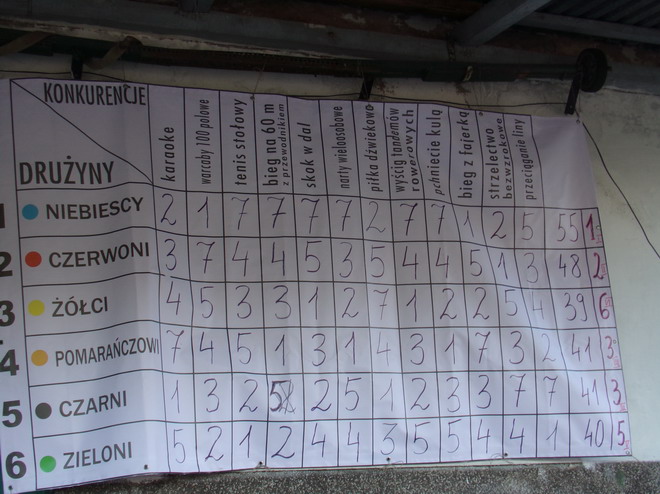 KONKURENCJE
DRUŻYNY
karaoke
warcaby 100 polowe
tenis stołowy
bieg na 60 m
z przewodnikiem
skok w dal
narty wieloosobowe
piłka dźwiękowa
wyścig tandemów
rowerowych
pchniecie kulą
bieg z fajerką
strzelectwo
bezwzrokowe
przeciąganie liny
1 NIEBIESCY 2 1 7 7 7 7 2 7 7 1 2 5 55 1
2 CZERWONI 3 7 4 4 5 3 5 4 4 5 1 3 48 2
3 ŻÓŁCI 4 5 3 3 1 2 7 1 2 2 5 4 39 6
4 POMARAŃCZOWI 7 4 5 1 3 1 4 3 1 7 3 2 41 3
5 CZARNI 1 3 2 5 2 5 1 2 3 3 7 7 41 3
6 ZIELONI 5 2 1 2 4 4 3 5 5 4 4 1 40 5